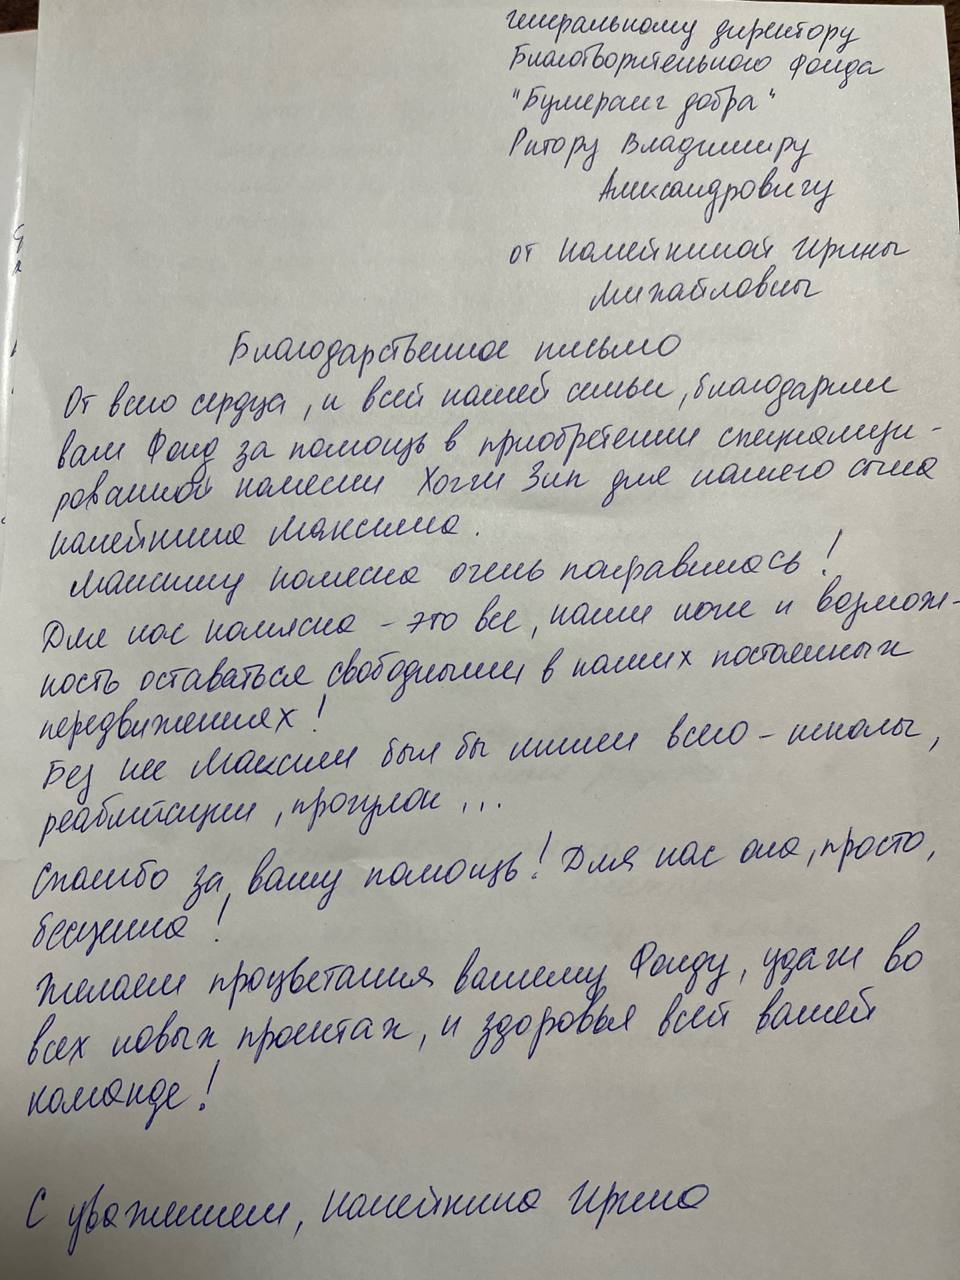 генеральному директору
Благотворительного Фонда
"Бумеранг добра"
Ритору Владимиру
Александровичу
от Копейкиной Ирины
Михайловны
Благодарственное письмо
От всего сердца, и всей нашей семьи, благодарим
вам Фонд за помощь в приобретении специализи-
рованной коляски Хогги Зип для нашего сына
Копейкина Максима.
Максиму коляска очень понравилась!
Для нас коляска - это все, наши ноги и возмож-
ность оставаться свободными, в наших постоянных
передвижениях!
Без нее Максим был бы лишен всего - школы,
реабилитации, прогулок ...
Спасибо за, вашу помощь! Для нас она, просто,
бесценна!
Желаем процветания вашему Фонду, удачи во
всех новых проектах, и здоровья всей вашей
команде!
С уважением, Копейкина Ирина